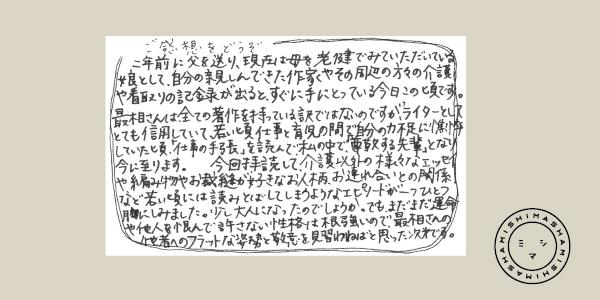 ご感想をどうぞ
二年前に父を送り、現在は母を老健でみていただいている
娘として、自分の親しんできた作家くやその周辺の方々の介護
や看取りの記録が出ると、すぐに手にとっている今日この頃です。
最相さんは全ての著作を持っている訳ではないのですが、ライターとして
とても信用していて、若い頃仕事と育児の間で自分の力不足に憔悴
していた頃、「仕事の手帳」を読んで私の中で「尊敬する先輩」となり
今に至ります。 今回拝読して、介護以外の様々なエッセイ
や編み物やお裁縫が好きなお人柄、お連れ合いとの関係
など若い頃には読みとばしてしまうようなエピソードが一つひとつ
胸にしみました。少し大人になったのでしょうか。でも、まだまだ運命
や他人を恨んで許さない性格は根強いので最相さんの
他者へのフラットな姿勢と敬意を見習わねばと思った次第です。
MISHIMASHA
ミシマ